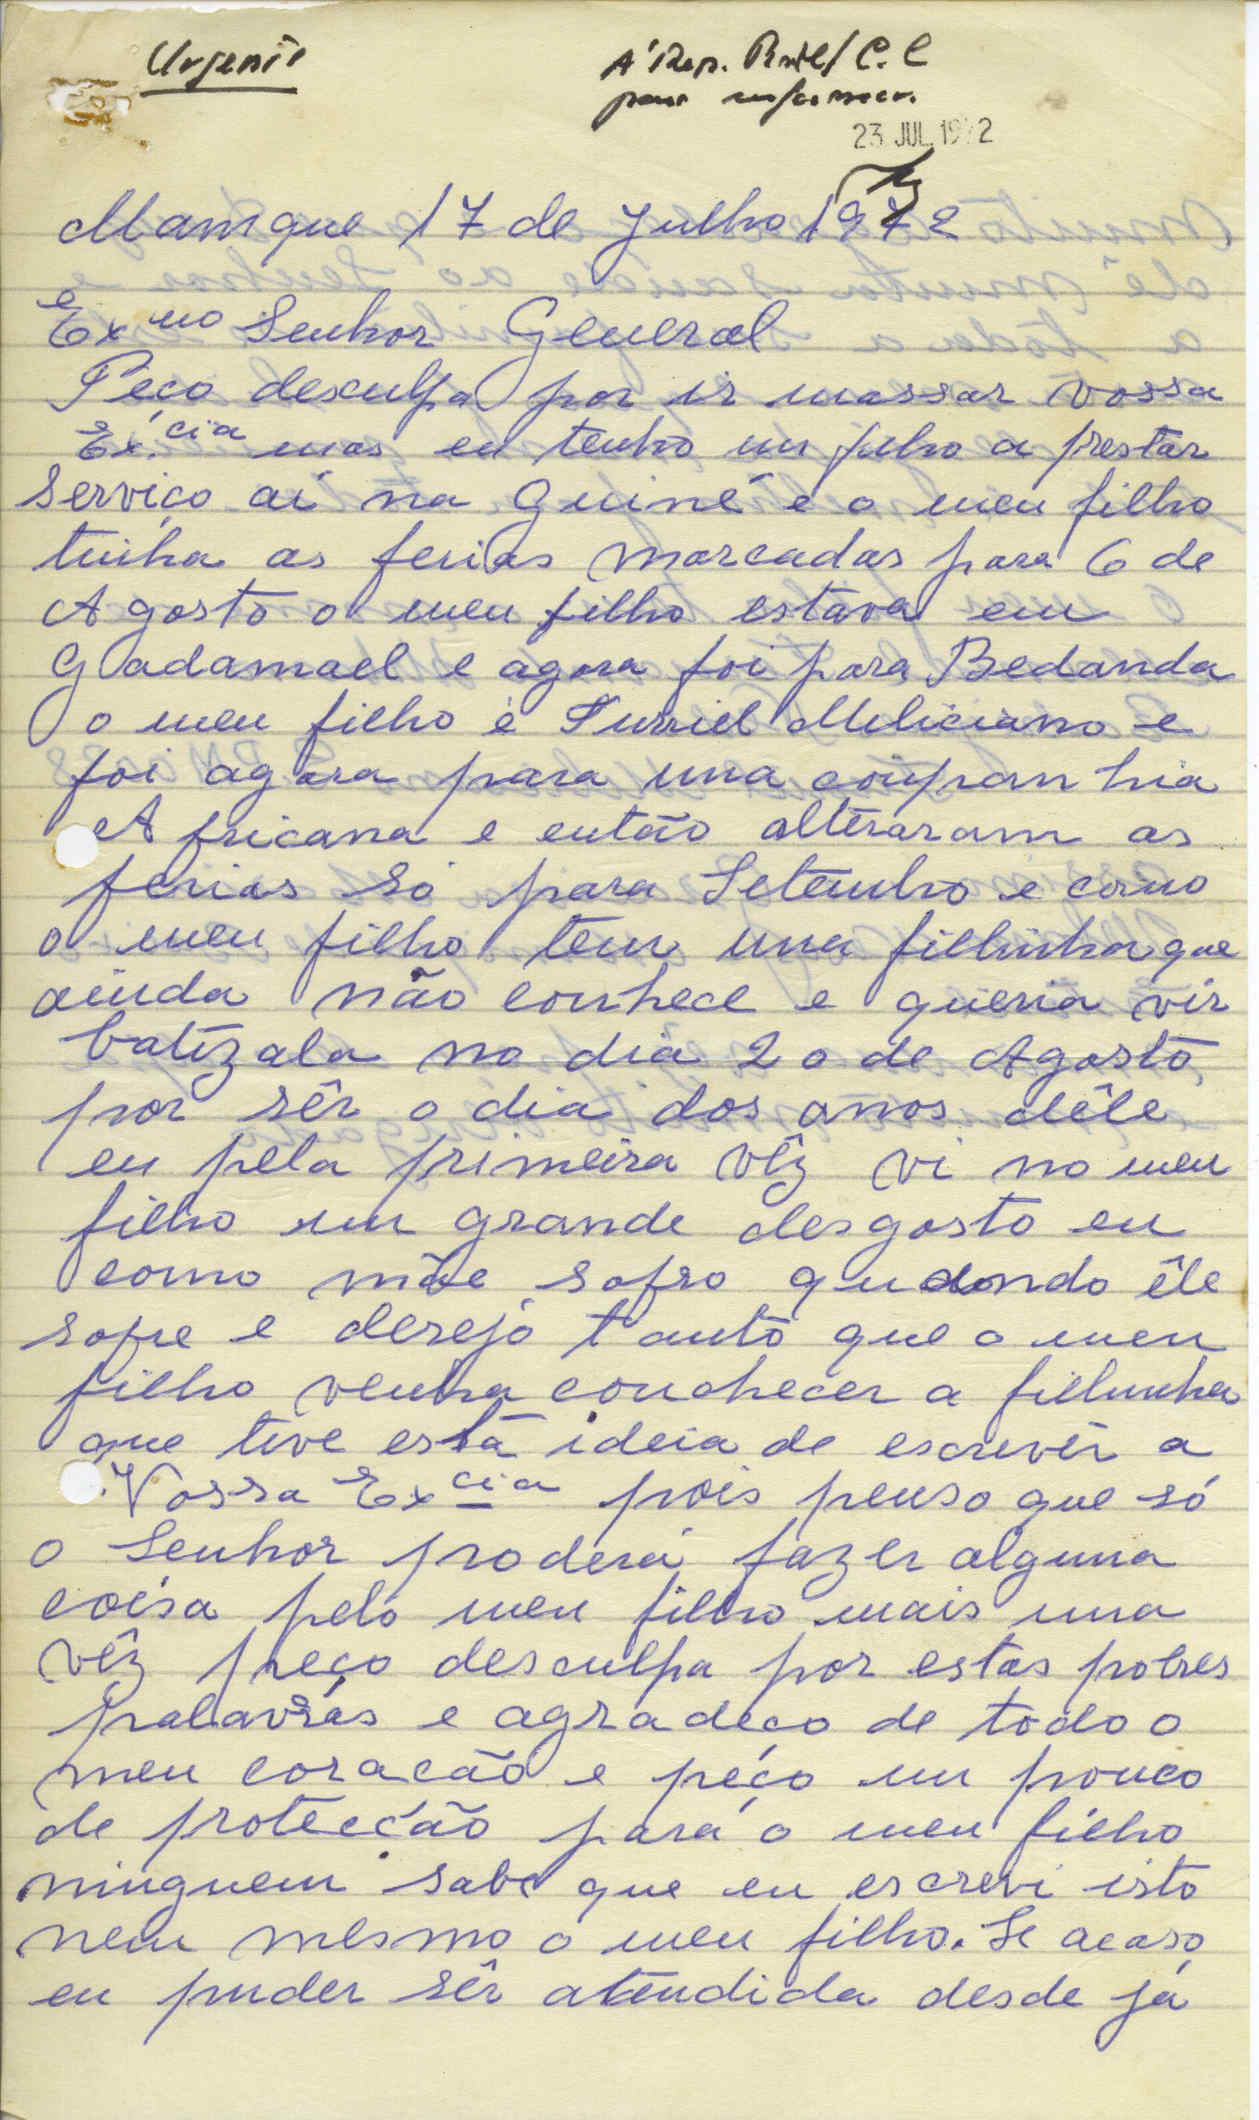 Urgente
À Rep. Post/ C.C
para informar.
23 JUL 1972
Mamque 17 de Julho 1972
Exmo Senhor General
Peço desculpa por ir massar vossa
Ex.cia mas eu tenho um filho a prestar
Serviço aí na Guiné e o meu filho
tinha as ferias marcadas para 6 de
Agosto o meu filho estava em
Gadamael e agora foi para Bedanda
o meu filho é Furriel Meliciano e
foi agora para uma companhia
Africana e então alteraram as
ferias só para Setembro e como
o meu filho tem uma filhinha que
ainda não conhece e queria vir
batizala no dia 20 de Agosto
por sêr o dia dos anos dêle
eu pela primeira vêz vi no meu
filho um grande desgosto eu
como mãe sofro quando êle
sofre e desejo tanto que o meu
filho venha conhecer a filhinha
que tive esta ideia de escrever a
Vossa Excia pois penso que só
o Senhor poderá fazer alguma
coisa pelo meu filho mais uma
vêz peço desculpa por estas pobres
palavras e agradeço de todo o
meu coracão e peço um pouco
de protecção para o meu filho
ninguem sabe que eu escrevi isto
nem mesmo o meu filho. Se acaso
eu puder sêr atendida desde já